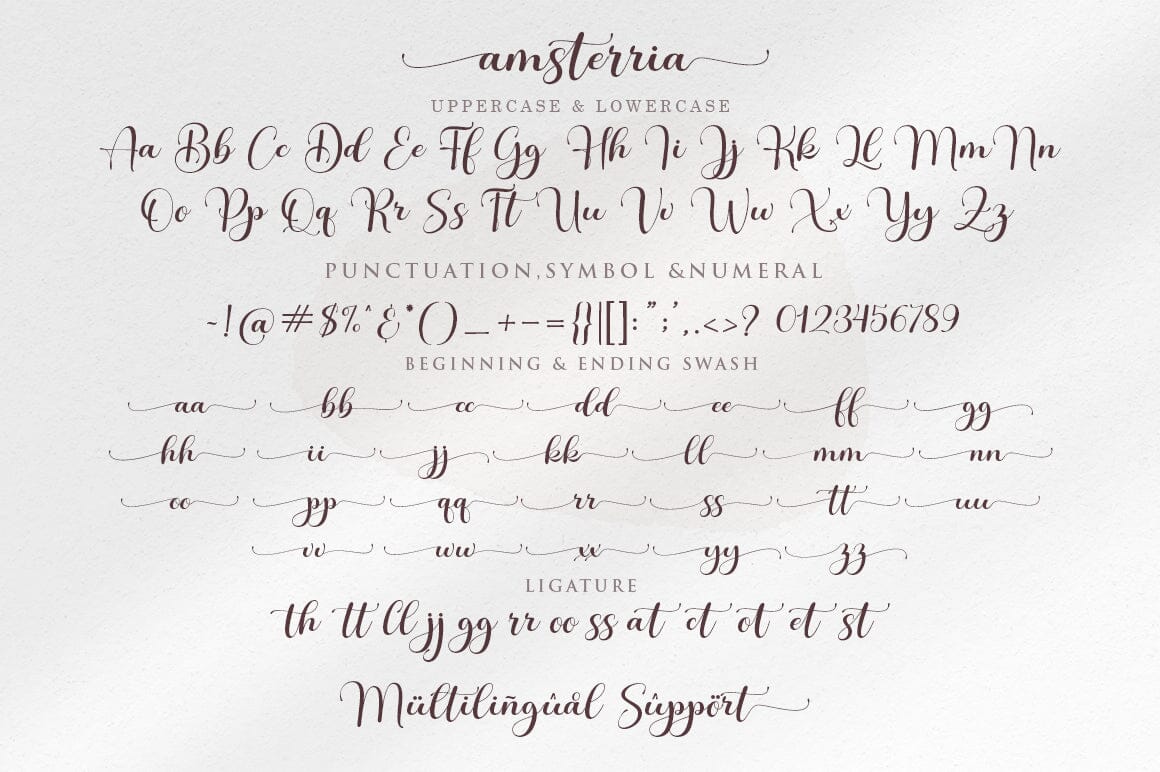 amsterria
UPPERCASE & LOWERCASE
Aa Bb Cc Dd Ee Ff Gg Hh Ii Jj Kk Ll Mm Nn
Oo Pp Qq Rr Ss Tt Uu Vv Ww Xx Yy Zz
PUNCTUATION,SYMBOL &NUMERAL
~!@#$%^&*()_+-={}|[]:";',.<>? 0123456789
BEGINNING & ENDING SWASH
aa bb cc dd ee ff gg
hh ii jj kk ll mm nn
oo pp qq rr ss tt uu
vv ww xx yy zz
LIGATURE
th tt ll jj gg rr oo ss at ct ot et st
Mültilingûål Sûppört